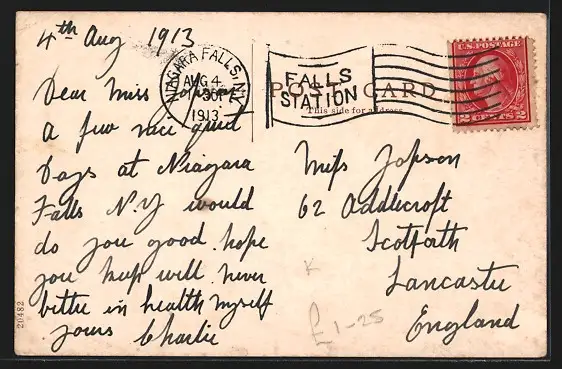 4th Aug 1913
Dear Miss Jopson
A few nice quiet
Days at Niagara
Falls N.Y would
do you good. hope
you keep well. never
better in health myself
yours Charlie
NIAGARA FALLS, N.Y.
AUG 4
1913
FALLS
STATION
POST CARD
This side for address
U.S. POSTAGE
2 CENTS 2
Miss Jopson
62 Addlecroft
Scotforth
Lancaster
England
£1-25
20482